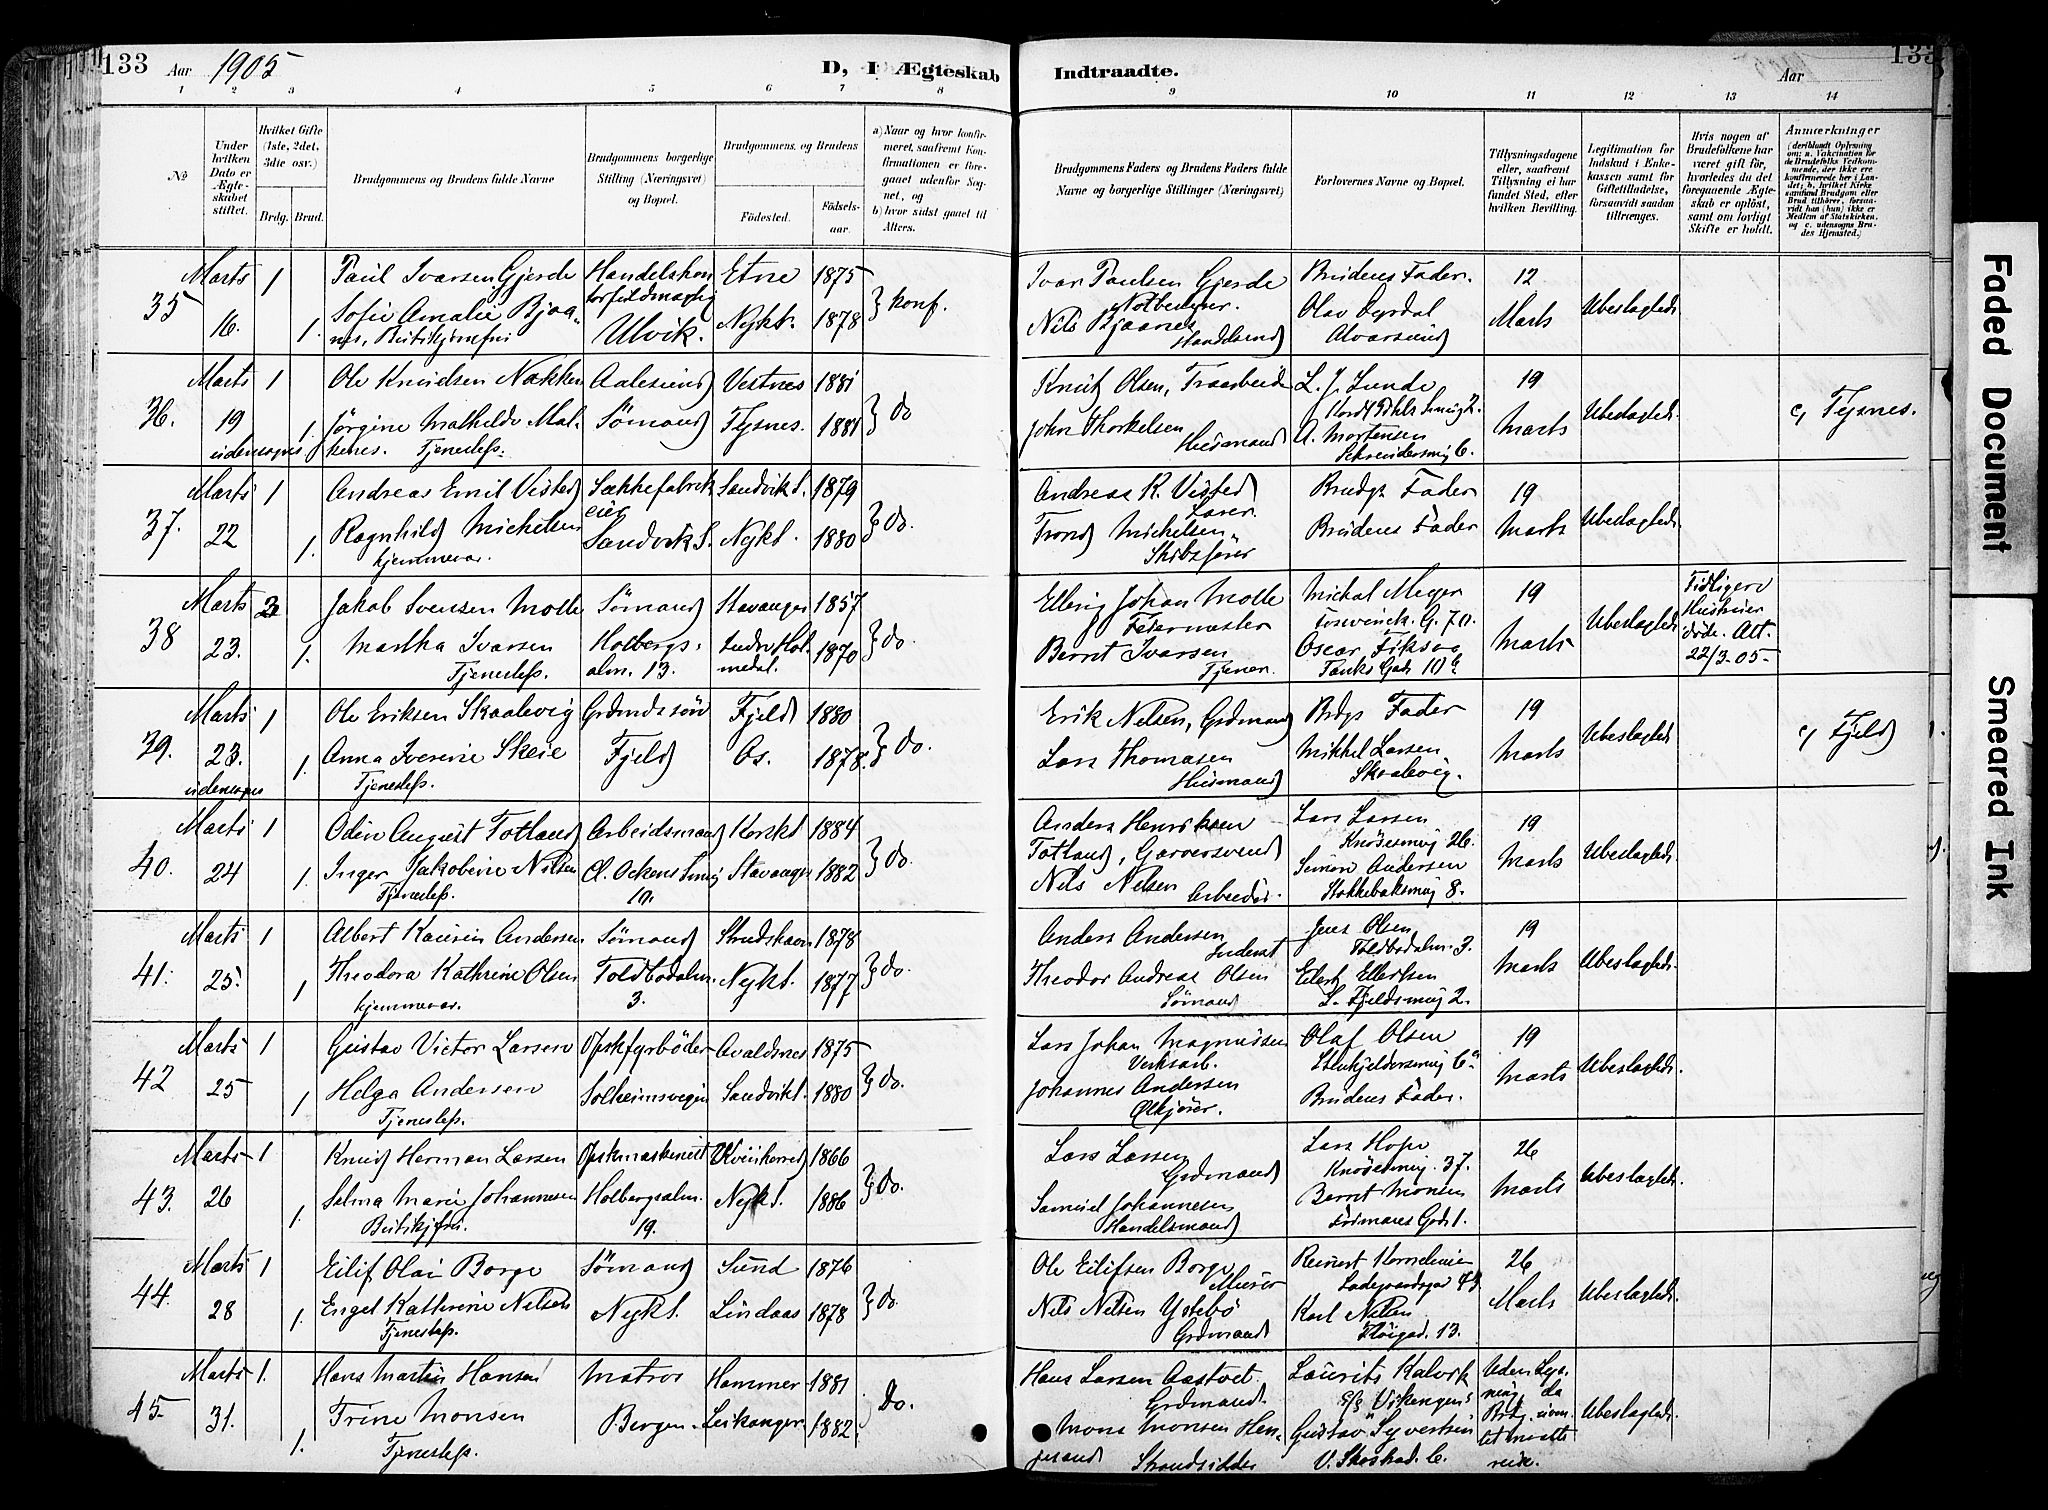 133 Aar 1905 D, I Ægteskab Indtraadte. Aar 133
1 2 3 4 5 6 7 8 9 10 11 12 13 14
№
Under hvilken Dato er Ægteskabet stiftet.
Hvilket Gifte (1ste, 2det, 3die osv.)
Brdg. Brud.
Brudgommens og Brudens fulde Navne
Brudgommens borgerlige Stilling (Næringsvei) og Bopæl.
Brudgommens. og Brudens
Födested. Födselsaar.
a) Naar og hvor konfirmeret, saafremt Konfirmationen er foregaaet udenfor Sognet, og
b) hvor sidst gaaet til Alters.
Brudgommens Faders og Brudens Faders fulde Navne og borgerlige Stillinger (Næringsvei)
Forlovernes Navne og Bopæl.
Tillysningsdagene eller, saafremt Tillysning ei har fundet Sted, efter hvilken Bevilling.
Legitimation for Indskud i Enkekassen samt for Giftetilladelse, forsaavidt saadan tiltrænges.
Hvis nogen af Brudefolkene har været gift før, hvorledes du det foregaaende Ægteskab er opløst, samt om lovligt Skifte er holdt.
Anmærkninger
35 Marts 16. 1 1.
Paul Ivarsen Gjerde
Sofie Amalie Bjaanes, Butikjomfru
Ulvik.
Etne 1875
Nykk. 1878
konf.
Ivar Paulsen Gjerde
Nils Bjaanes
Brudens Fader.
Alvarsund
12 Marts
Ubeslagtede
36. Marts 19 udensogns 1 1.
Ole Knudsen Nakken
Jørgine Mathilde Malkenes. Tjenestep.
Aalesund Sømand
Vestnes 1881
Tysnes. 1881
do
Knut Olsen, Traarbeider
John Thorkelsen Husmand
L. J. Lunde
A. Mortensen
19 Marts
Ubeslagtede.
c, Tysnes.
37. Marts 22 1 1.
Andreas Emil Visted
Ragnhild Michelsen hjemmevær.
Sækkefabrikeier Sandvik S.
Sandvik S. 1879
Nykk. 1880
do.
Andreas K. Visted
Trond Michelsen Skibsfører
Brudgs Fader
Brudens Fader
19 Marts
Ubeslagtede.
38 Marts 23. 3 1.
Jakob Svensen Molle
Martha Ivarsen Tjenestep.
Sømand Holbergsalm. 13.
Stavanger 1857
Indre Holmedal. 1870
do.
Elling Johan Molle
Bernt Ivarsen Tjener.
Michal Meyer
Oscar
19 Marts
Ubeslagtede
Tidligere Hustruer døde. Att. 22/3-05-
39. Marts 23. udensogns 1 1.
Ole Eriksen Skaalevig
Anna Iverine Skeie Tjenestep.
Grdmdssøn Fjeld
Fjeld 1880
Os. 1878.
do.
Erik Nilsen, Grdmand
Lars Thomasen Husmand
Brdgs Fader
Mikkel Larsen Skaalevig.
19 Marts
Ubeslagtede
c, Fjeld
40. Marts 24 1 1.
Odin August Totland
Inger Jakobine Nilsen Tjenestep.
Arbeidsmand Cl. Ockens Smug 10.
Korskk 1884
Stavanger 1882
do.
Anders Henriksen Totland, Garversvend
Nils Nilsen Arbeider.
Lars Larsen Knøsesmug 26.
Simon Andersen Stokkebaksmug 8.
19 Marts
Ubeslagtede.
41. Marts 25. 1 1
Albert Kaurin Andersen
Theodora Kathrine Olsen hjemmevær.
Sømand Toldbodalm. 3.
Strudshavn 1878
Nykk. 1877
do.
Anders Andersen Inderst
Theodor Andreas Olsen Sømand
Jens Olsen Toldbodalm. 3.
Eilert Ellertsen L. Fjeldsmug 2.
19 Marts
Ubeslagtede.
42 Marts 25 1 1
Gustav Victor Larsen
Helga Andersen Tjenestep.
Opskfyrbøder Solheimsvegen
Avaldsnes 1875
Sandvikk. 1880
do.
Lars Johan Magnussen Verksarb.
Johannes Andersen Ølkjører.
Olaf Olsen Stenkjeldersmug 6a
Brudens Fader.
19 Marts
Ubeslagtede.
43. Marts 26 1 1.
Knud Herman Larsen
Selma Marie Johannesen Butikjfru.
Opskmaskinist Holbergsalm. 19.
Kvinherred 1866
Nykk. 1886
do.
Lars Larsen Grdmand
Samuel Johannesen Handelsmand
Lars Hope Knøsesmug. 37.
Bernt Monsen
26 Marts
Ubeslagtede.
44. Marts 28 1 1.
Eilif Olai Borge
Engel Kathrine Nilsen Tjenestep.
Sømand Nykk.
Sund 1876
Lindaas 1878
do.
Ole Eilifsen Borge Murer
Nils Nilsen Ystebö Grdmand
Reinert Korneliussen
Karl Nilsen Fløigad. 13.
26 Marts
Ubeslagtede.
45. Marts 31. 1. 1.
Hans Martin Hansen
Trine Monsen Tjenestep.
Matros Bergen.
Hammer 1881
Leikanger. 1882
Do.
Hans Larsen Aastvet. Grdmand.
Mons Monsen Strandsidder
Laurits Kalvik S/S Vikingens
Gustav Syvertsen V. Skostræd. 6.
Uden Lysning, da
Ubeslagtede
Faded Document
Smeared Ink